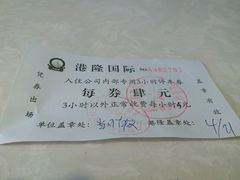 港隆国际
入住公司内部专用3小时停车券
每券肆元
3小时以外正常收费每小时5元
凭券出场
盖章有效
单位盖章处:
港隆盖章处:
4/21